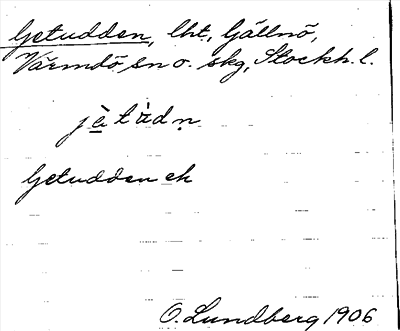 Getudden, lht., Gällnö,
Värmdö sn o. skg, Stockh. l.
Getudden ek
O. Lundberg 1906